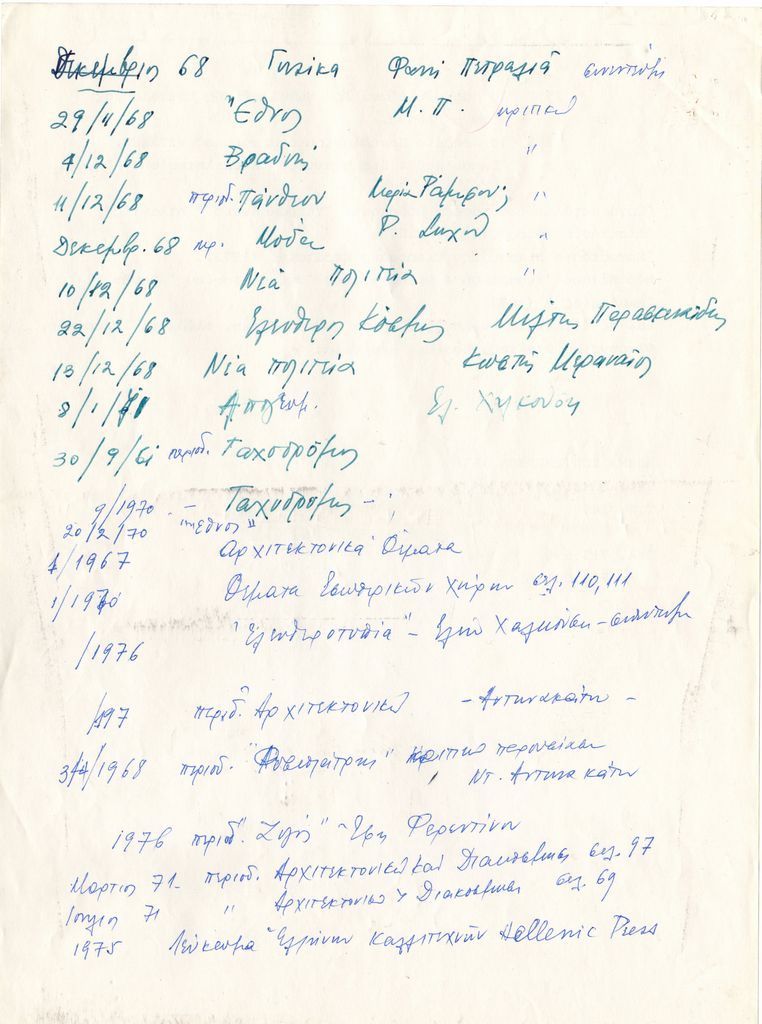 Δεκέμβριος 68 Γυναίκα Φανή Πετραλιά συνέντευξη
29/11/68 "Έθνος Μ. Π. κριτική
4/12/68 Βραδυνή "
11/12/68 περιοδ. Πάνθεον Μαρία "
Δεκεμβρ. 68 περ. Μόδα Ρ. "
10/12/68 Νέα πολιτεία "
22/12/68 Ελεύθερος Κόσμος Μιλτης Παρασκευαΐδης
13/12/68 Νέα πολιτεία Κωστής Μεραναίος
8/1/71 Απογευμ. Ελ.
30/9/61 περιοδ. Ταχυδρόμος
9/1970 - Ταχυδρόμος - ;
20/2/70 "Έθνος"
4/1967 Αρχιτεκτονικά Θέματα
1/1970 Θέματα Εσωτερικών Χώρων σελ. 110, 111
/1976 "Ελευθεροτυπία" - Ελένη - συνέντευξη
/197 περιοδ. Αρχιτεκτονική - Αντωνακάτου -
3/4/1968 περιοδ. " " κριτική
Ντ. Αντωνακάτου
1976 περιοδ. "Ζυγός" Έφη Φερεντίνου
Μαρτιος 71 - περιοδ. Αρχιτεκτονική και Διακόσμησις σελ. 97
Ιουλιος 71 " Αρχιτεκτονική & Διακόσμησις σελ. 69
1975 Λεύκωμα Ελλήνων καλλιτεχνών Hellenic Press